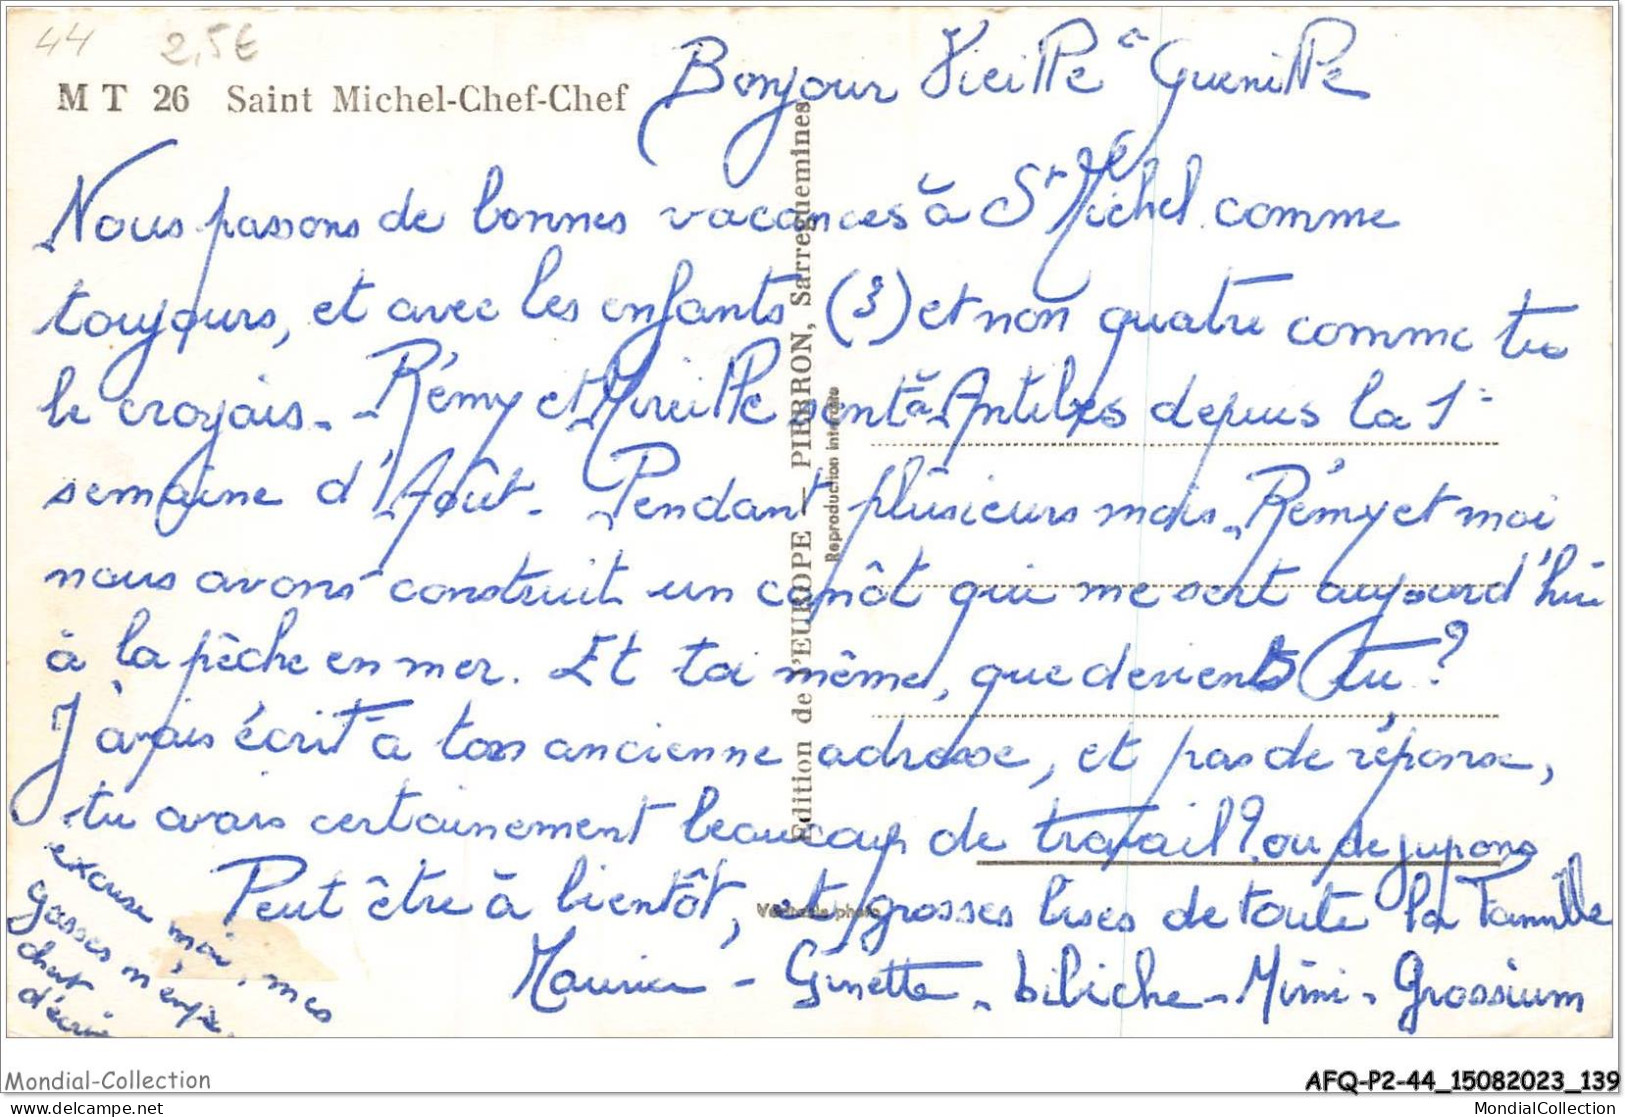 44 2,5€
M T 26 Saint Michel-Chef-Chef
Bonjour Vieille Guenille
Nous passons de bonnes vacances à St Michel comme
toujours, et avec les enfants (3) et non quatre comme tu
le croyais. Rémy et Mireille sont à Antibes depuis la 1e
semaine d'Août. Pendant plusieurs mois Rémy et moi
nous avons construit un canôt qui me sert aujourd'hui
à la pêche en mer. Et toi même, que deviens tu ?
J'avais écrit à ton ancienne adresse, et pas de réponse,
tu avais certainement beaucoup de travail ? ou de jupons
Peut être à bientôt, et grosses bises de toute la Famille
Maurice - Ginette - bibiche - Mimi - Grossium
excuse moi, mes
gosses m'empê.
chent
d'écrire
Edition de l'EUROPE — PIERRON, Sarreguemines
Reproduction interdite
Véritable photo
Mondial-Collection
AFQ-P2-44_15082023_139
delcampe.net
MondialCollection